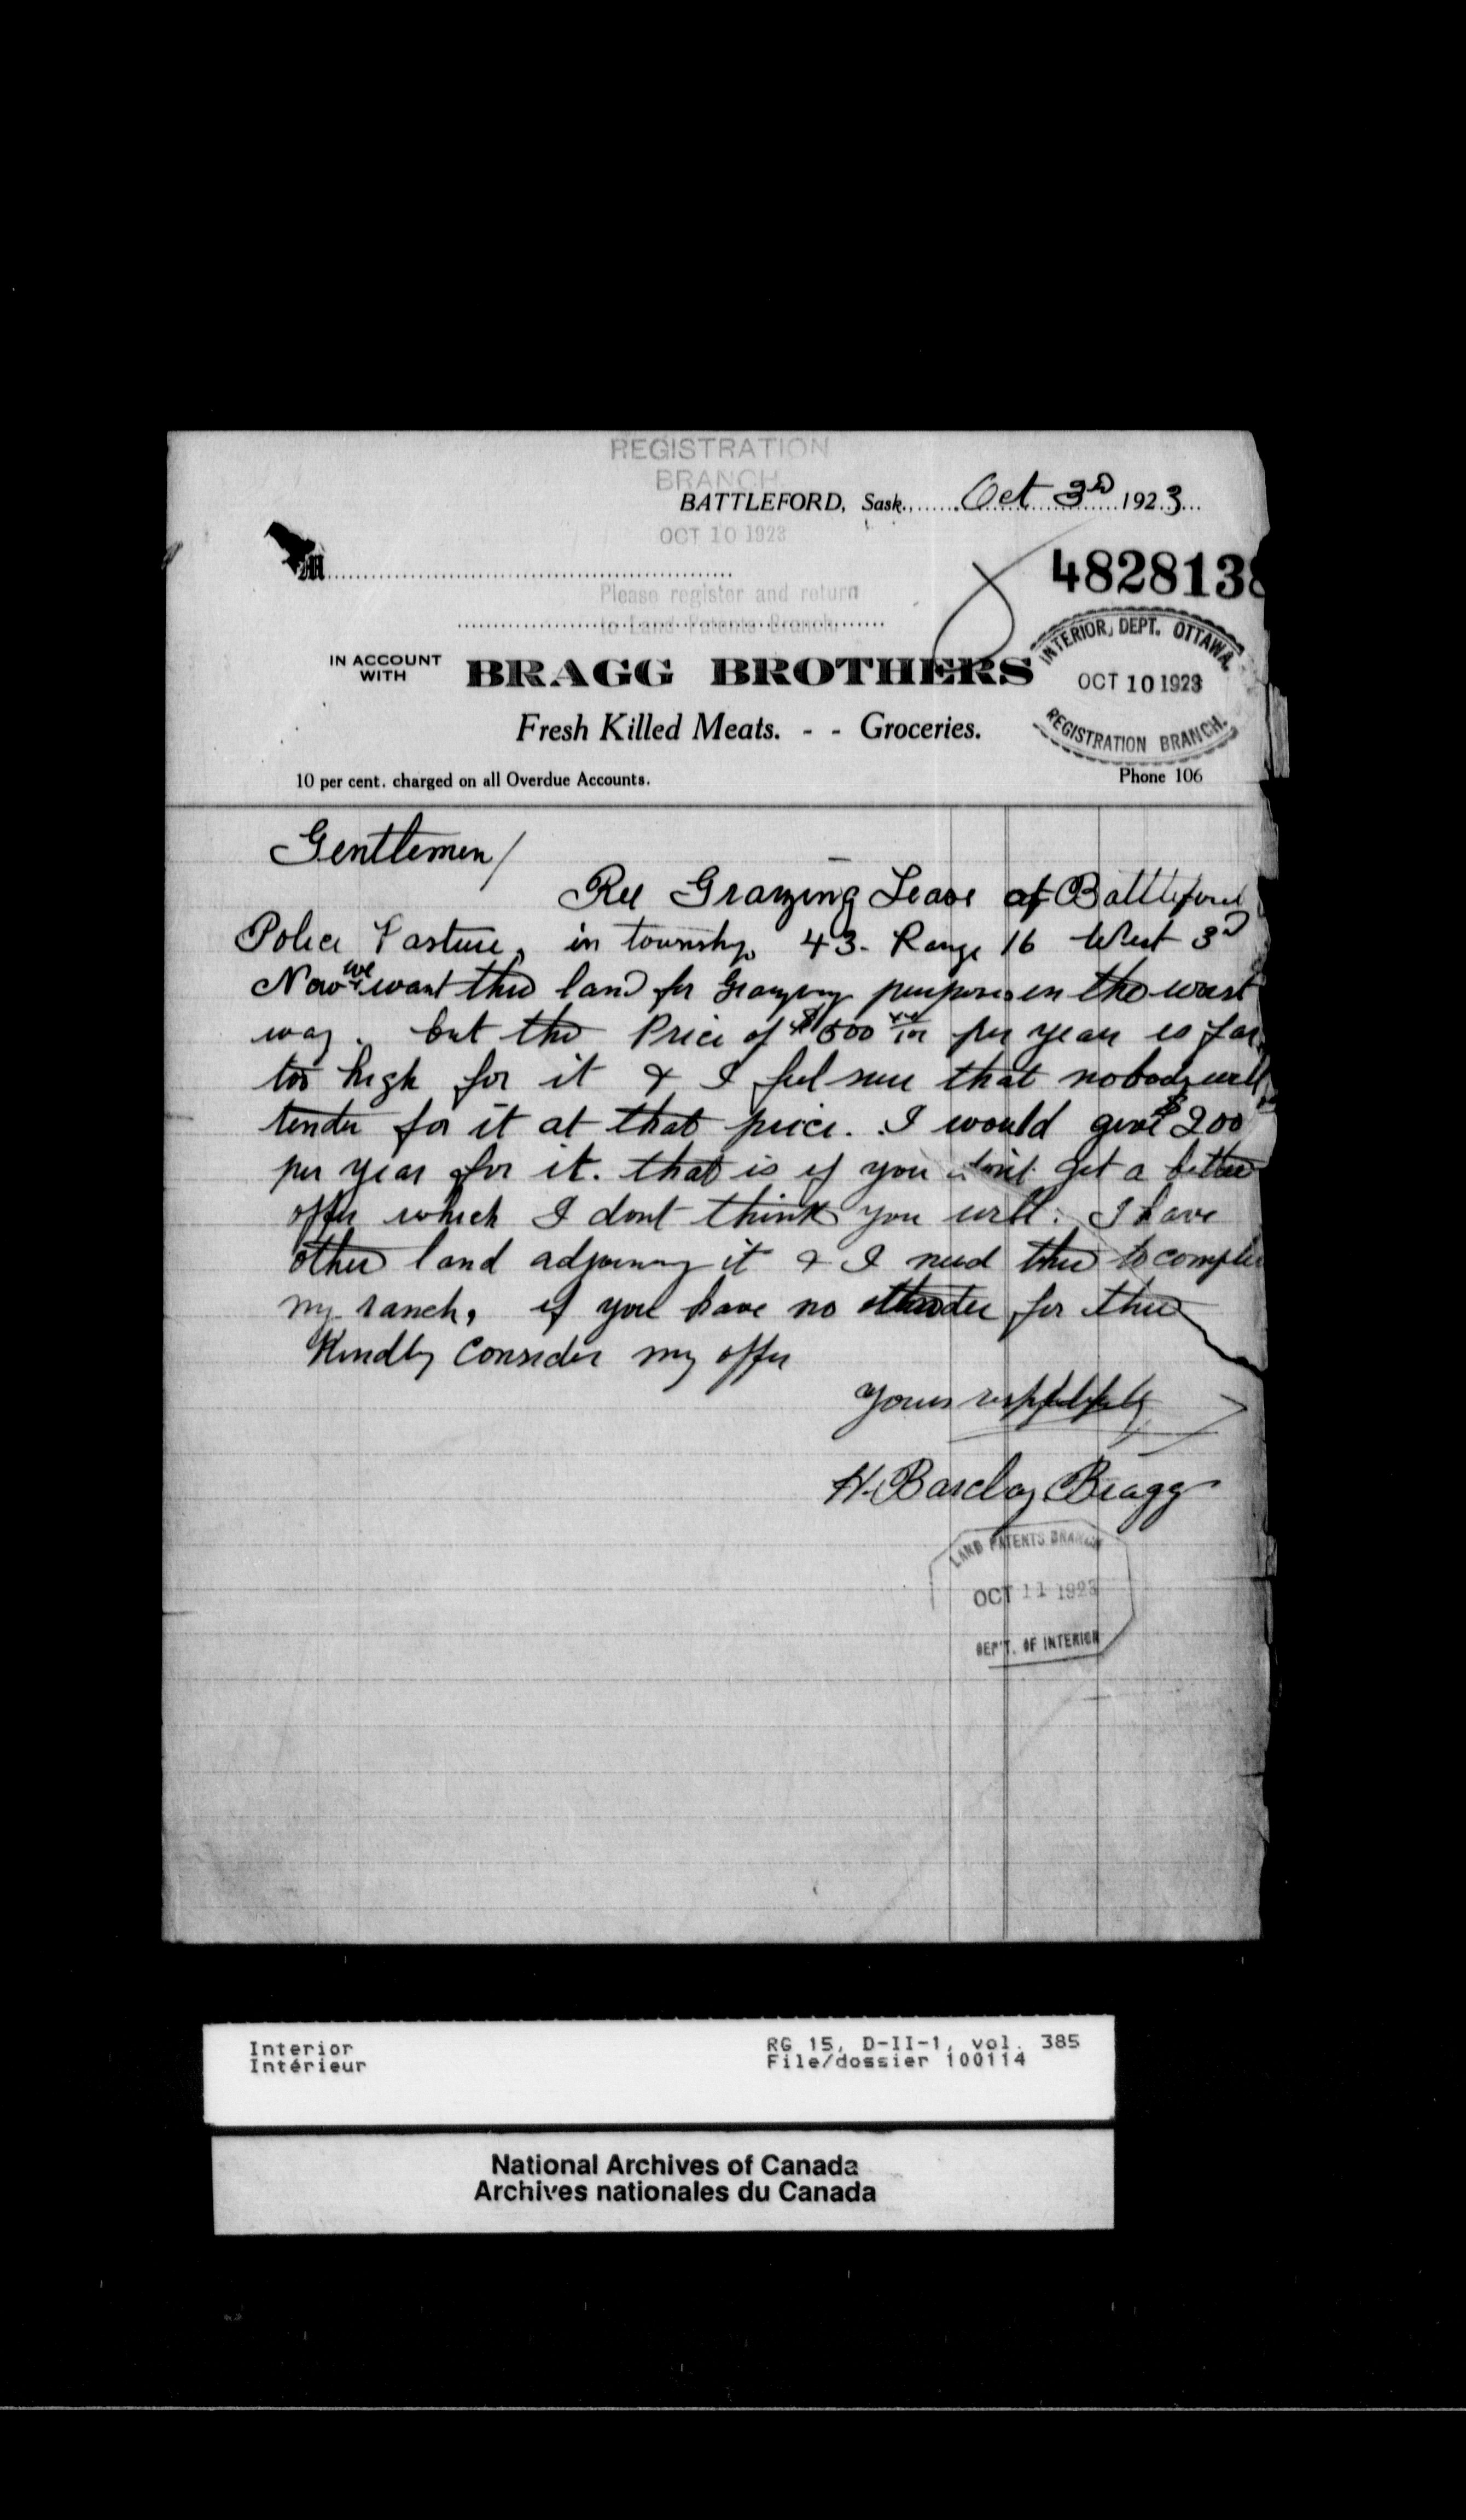 REGISTRATION
BRANCH
BATTLEFORD, Sask. Oct 3rd 1923
OCT 10 1923
M
4828138
Please register and return
to Land Patents Branch
INTERIOR DEPT. OTTAWA.
OCT 10 1923
REGISTRATION BRANCH.
IN ACCOUNT
WITH
BRAGG BROTHERS
Fresh Killed Meats. - - Groceries.
10 per cent. charged on all Overdue Accounts.
Phone 106
Gentlemen/
Ree Grazing Lease of Battleford
Police Pasture, in township 43- Range 16 West 3rd
Now we want this land for Grazing purposes in the worst
way. but the Price of $500 xx/100 per year is far
too high for it & I feel sure that nobody will
tender for it at that price. I would give $200
per year for it. that is if you dont get a better
offer which I dont think you will. I have
other land adjoining it & I need this to complete
my ranch, if you have no for this
Kindly Consider my offer
Yours respectfully
H. Barclay Bragg
LAND PATENTS BRANCH
OCT 11 1923
DEP'T. OF INTERIOR
Interior
Intérieur
RG 15, D-II-1, vol. 385
File/dossier 100114
National Archives of Canada
Archives nationales du Canada